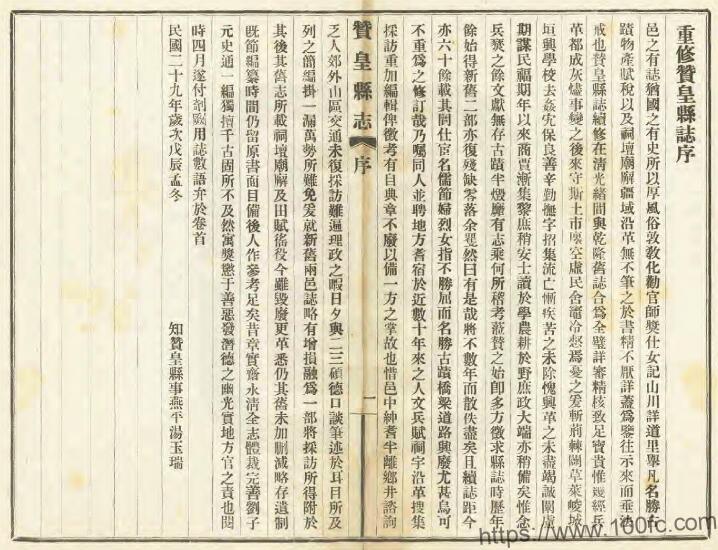 重修贊皇縣誌序
邑之有誌猶國之有史所以厚風俗敦教化勸官師獎仕女記山川詳道里舉凡名勝古
蹟物產賦稅以及祠壇廟廨疆域沿革無不筆之於書精不厭詳蓋為鑒往示來而垂法
戒也贊皇縣誌續修在清光緒間與乾隆舊誌合為全璧詳審精核致足寶貴惟幾經兵
革都成灰燼事變之後來守斯土市廛空虛民舍竈冷怒焉憂之爰斬荊棘闢草萊峻城
垣興學校去姦宄保良善辛勤撫字招集流亡慚疾苦之未除愧興革之未盡竭誠闕慮
期謀民福期年以來商賈漸集黎庶稍安士讀於學農耕於野庶政大端亦稍備矣惟念
兵燹之餘文獻無存古蹟半燬廳有志乘何所稽考蒞贊之始即多方徵求縣誌時歷年
餘始得新舊二部亦復殘缺零落余瞿然曰有是哉將不數年而散佚盡矣且續誌距今
亦六十餘載其間仕宦名儒節婦烈女指不勝屈而名勝古蹟橋梁道路興廢尤甚烏可
不重為之修訂哉乃囑同人並聘地方耆宿於近數十年來之人文兵賦祠宇沿革搜集
採訪重加編輯俾徵考有自典章不廢以備一方之掌故也惜邑中紳耆半離鄉井諮詢
贊皇縣志
序
一
乏人郊外山區交通未復採訪難遍理政之暇日夕與二三碩德口談筆述於耳目所及
列之簡編掛一漏萬勢所難免爰就新舊兩邑誌略有增損融為一部將採訪所得附於
其後其舊志所載祠壇廟廨及田賦徭役今雖毀廢更革悉仍其舊未加刪減略存遺制
既節編纂時間仍留原書面目備後人作參考足矣昔章實齋永清全志體裁完善劉子
元史通一編獨擅千古固所不及然寓獎懲于善惡發潛德之幽光實地方官之責也閱
時四月遂付剞劂用誌數語弁於卷首
民國二十九年歲次戊辰孟冬
知贊皇縣事燕平湯玉瑞
https://www.100fc.com